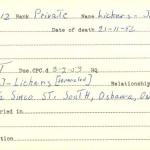 12 Rank Private Name Lickers - J
Date of death 21-11-52
T Due.CPC.d 3-2-53 Hq
J-Lickers (remarried) Relationship
Simcoe St. South, Oshawa, On
ried in